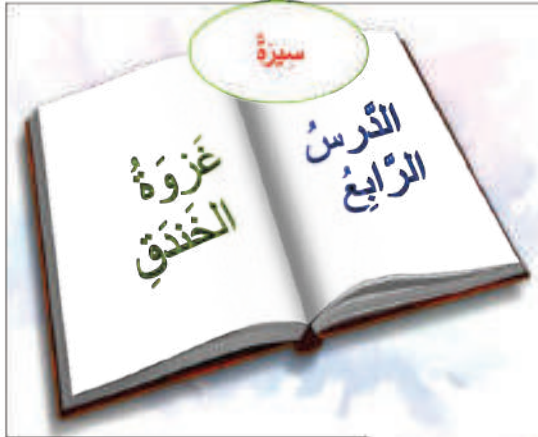 سيرَةٌ
الدَّرسُ
الرَّابِعُ
غَزوَةُ
الخَندَقِ